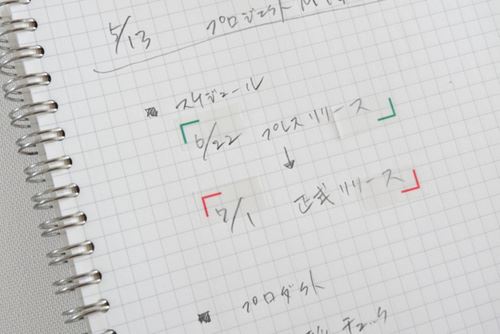 5/13 プロジェクトMTG
■ スケジュール
6/22 プレスリリース
↓
7/1 正式リリース
■ プロダクト
チェック